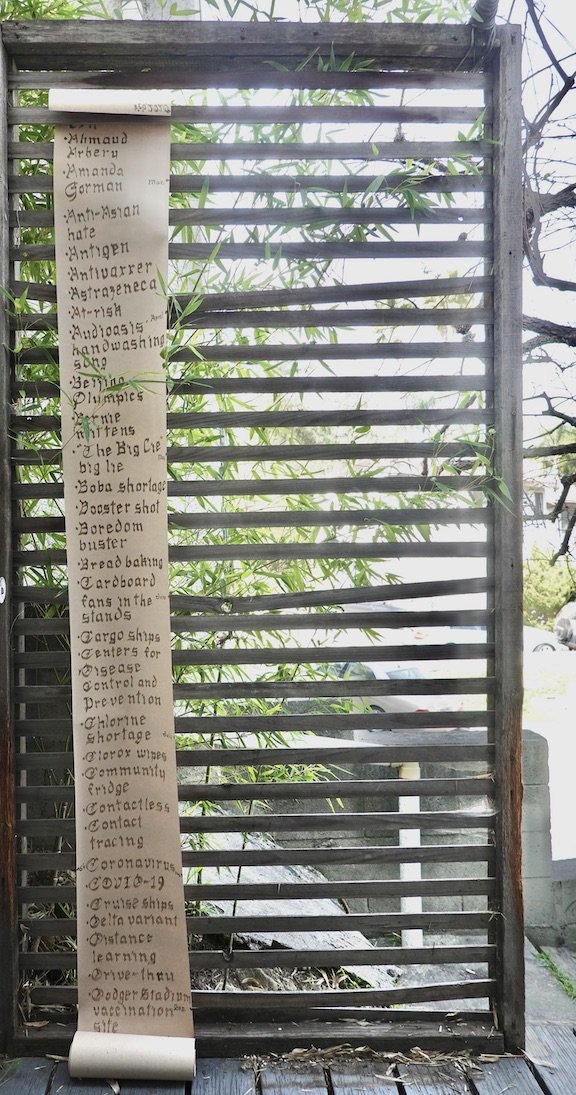 ·Ahmaud
Arbery
·Amanda
Gorman
·Anti-Asian
hate
·Antigen
·Antivaxxer
·Astrazeneca
·At-risk
·Audioasis
handwashing
song
·Beijing
Olympics
·Bernie
mittens
·"The Big Lie"
big lie
·Boba shortage
·Booster shot
·Boredom
buster
·Bread baking
·Cardboard
fans in the
stands
·Cargo ships
·Centers for
Disease
Control and
Prevention
·Chlorine
shortage
·Clorox wipes
·Community
fridge
·Contactless
·Contact
tracing
·Coronavirus
·COVID-19
·Cruise ships
·Delta variant
·Distance
learning
·Drive-thru
·Dodger Stadium
vaccination
site